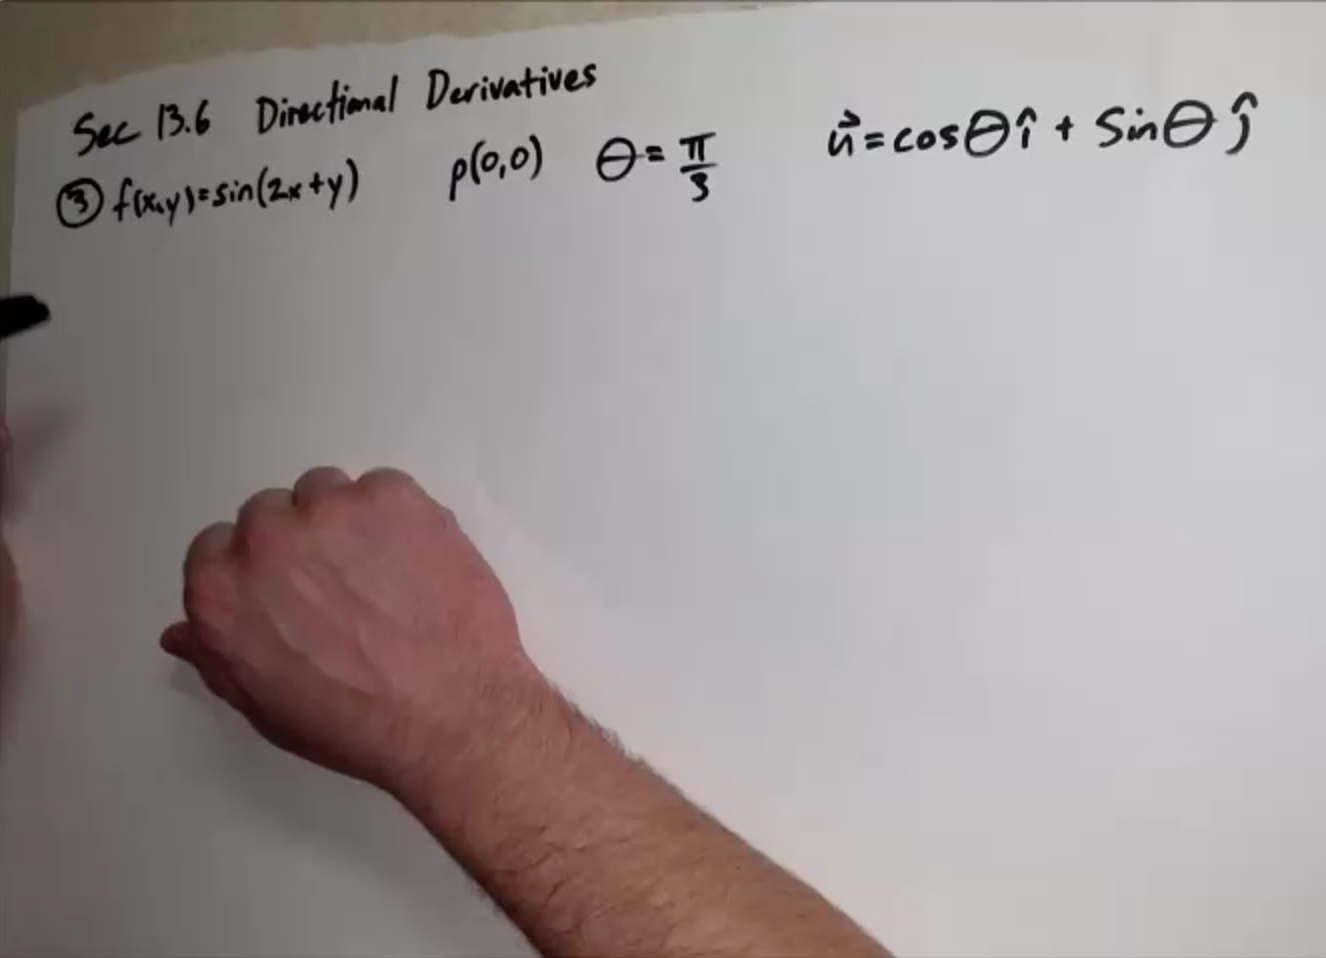 Sec 13.6 Directional Derivatives
③ f(x,y)=sin(2x+y) p(0,0) θ=π/3 u⃗=cosθ î + sinθ ĵ